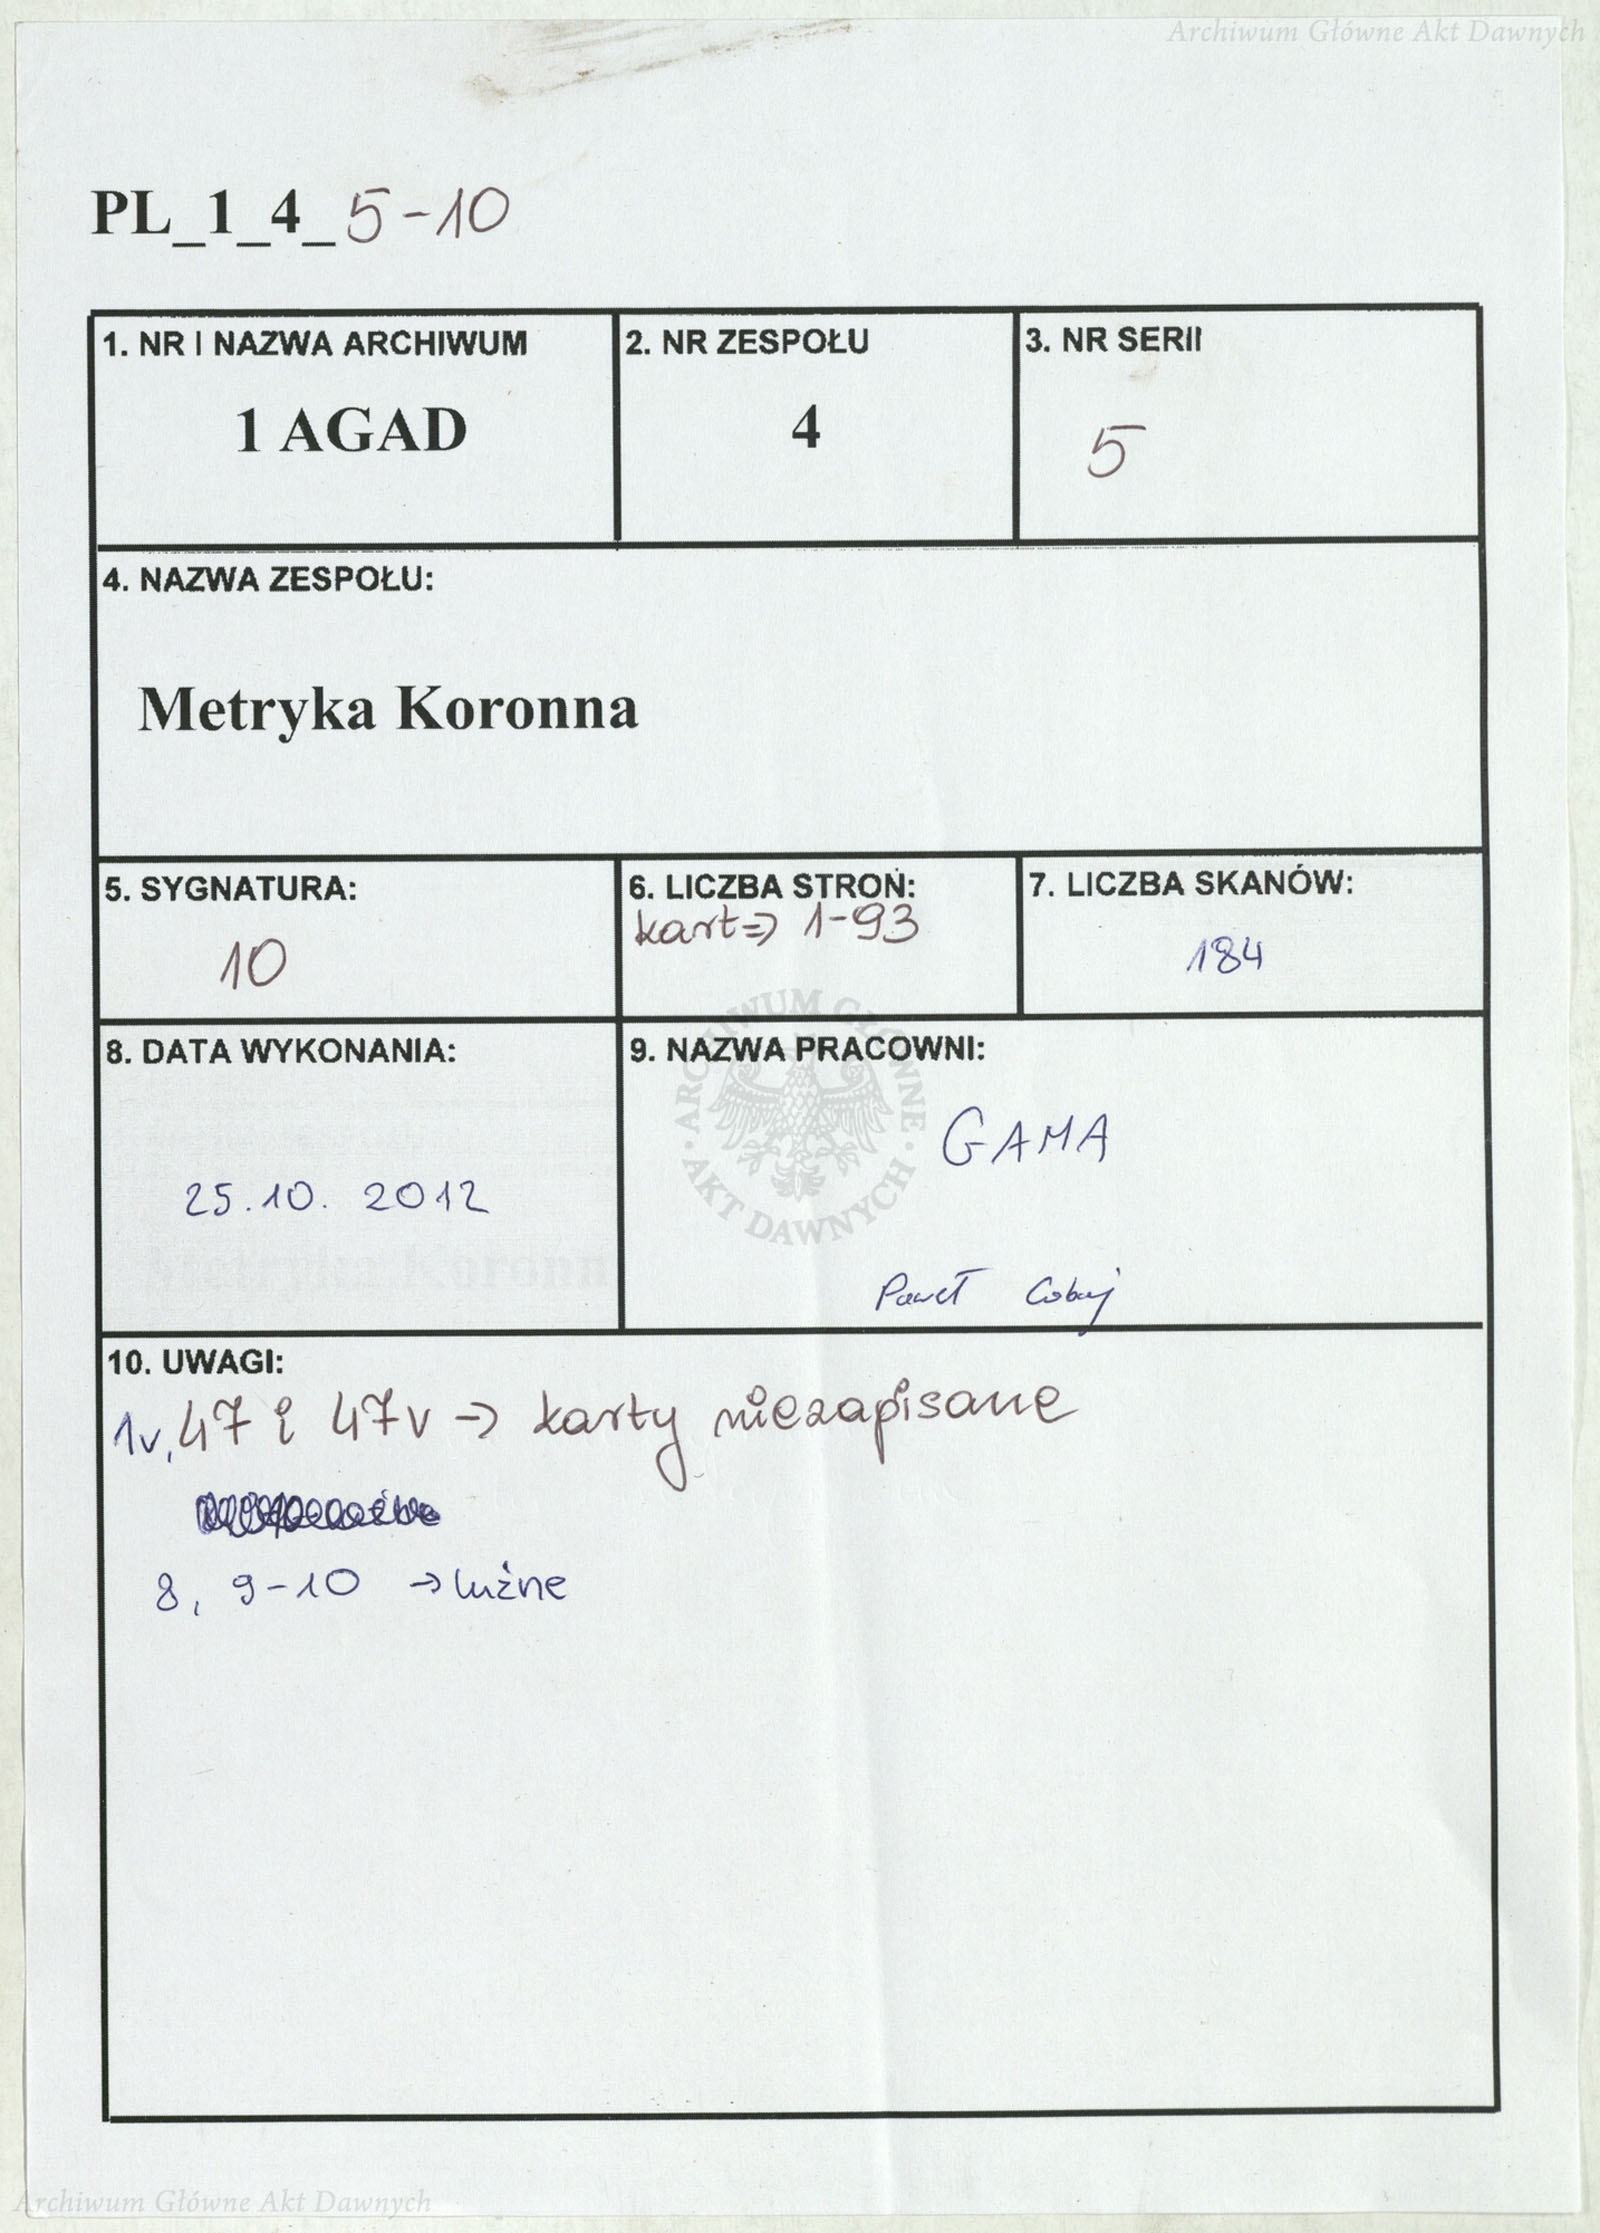 Archiwum Główne Akt Dawnych
PL_1_4_5-10
1. NR I NAZWA ARCHIWUM
1 AGAD
2. NR ZESPOŁU
4
3. NR SERII
5
4. NAZWA ZESPOŁU:
Metryka Koronna
5. SYGNATURA:
10
6. LICZBA STRON:
kart => 1-93
7. LICZBA SKANÓW:
184
8. DATA WYKONANIA:
25.10. 2012
9. NAZWA PRACOWNI:
GAMA
Paweł
10. UWAGI:
1v, 47 i 47v -> karty niezapisane
8, 9-10 -> luźne
ARCHIWUM GŁÓWNE AKT DAWNYCH
Archiwum Główne Akt Dawnych